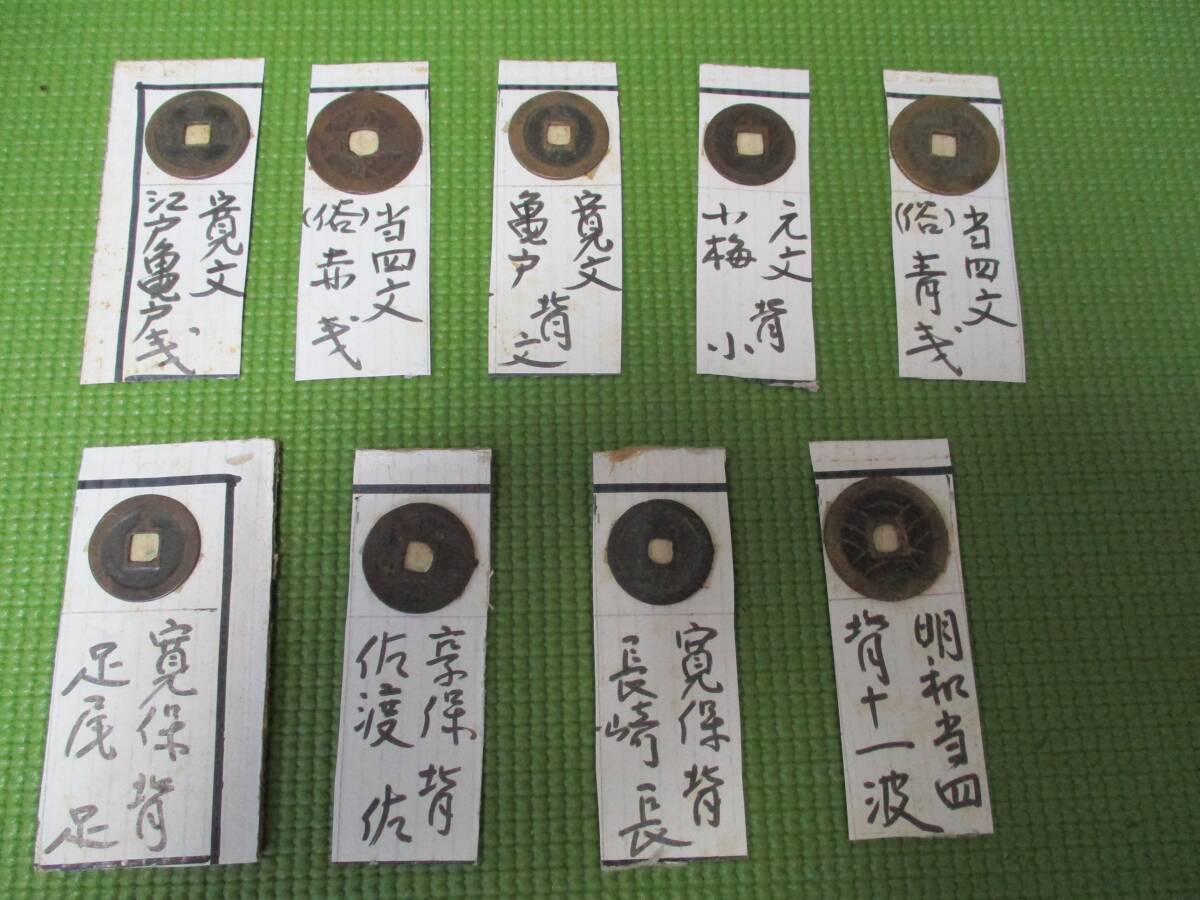 寛文
江戸亀戸銭
当四文
(俗)赤銭
寛文
亀戸 背文
元文 背
小梅 小
当四文
(俗)青銭
寛保 背
足尾 足
享保 背
佐渡 佐
寛保 背
長崎 長
明和当四
背十一波